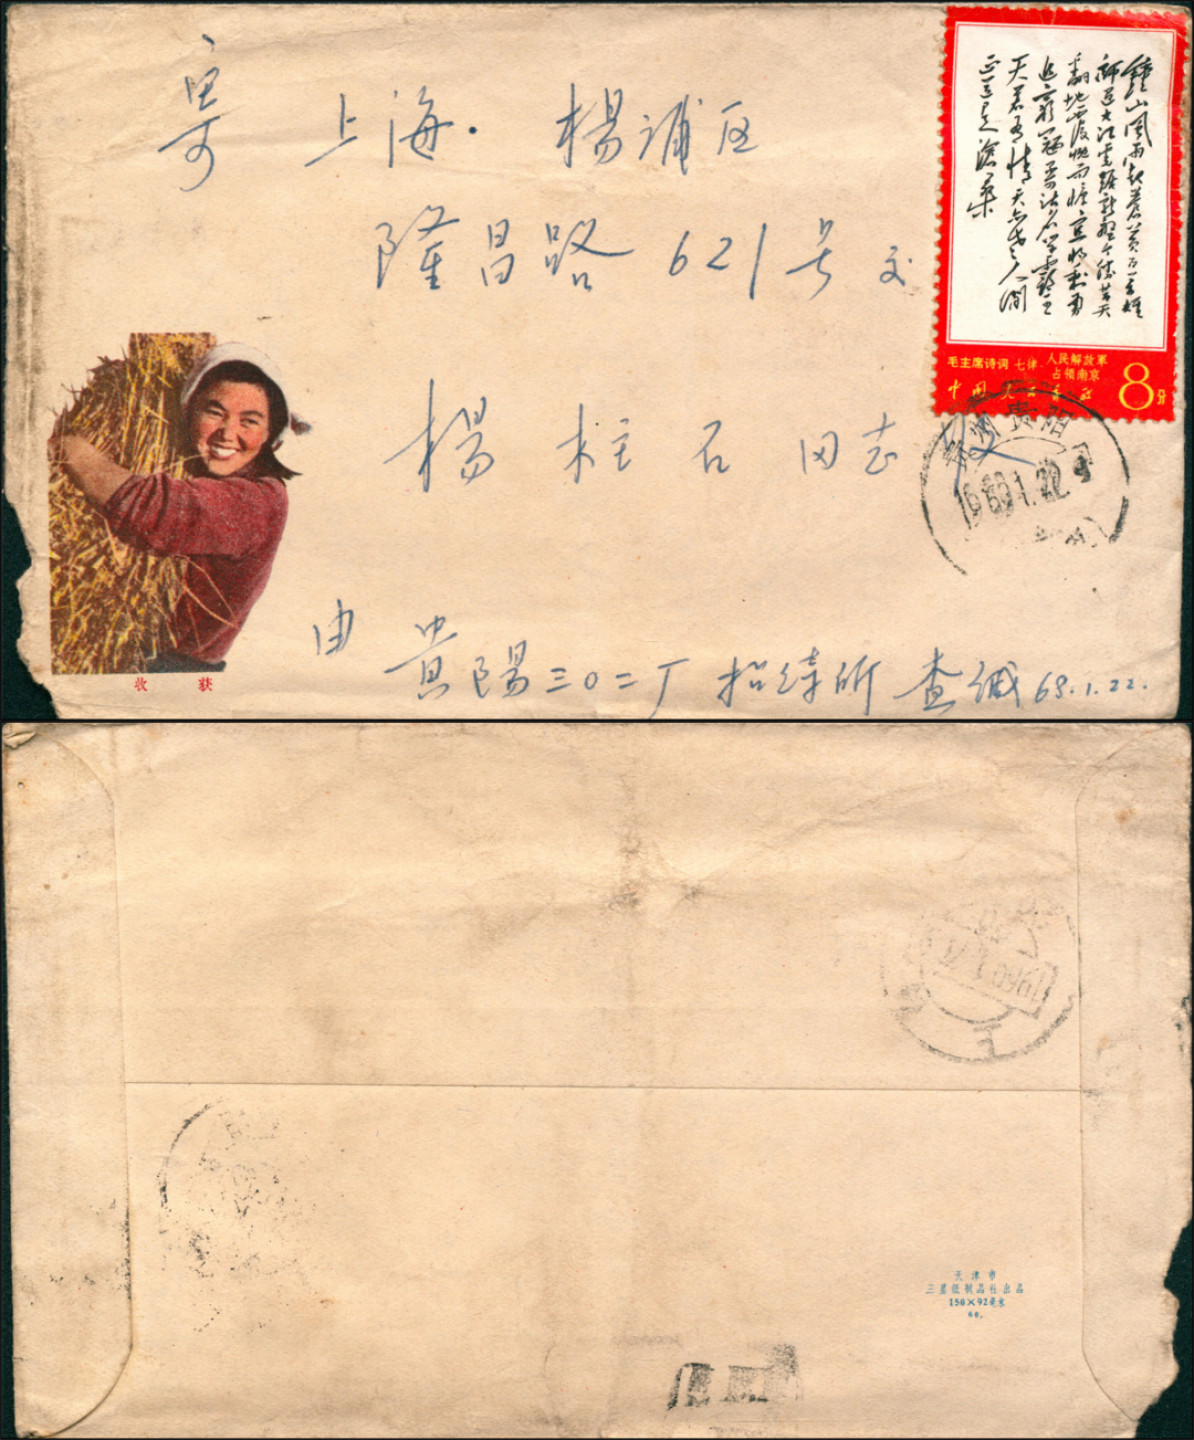 寄 上海·杨浦区
隆昌路 621号 交
杨柱石同志 收
由 貴陽三〇二厂招待所 查缄 69.1.22.
鍾山風雨起蒼黄百萬雄
師過大江虎踞龍盤今勝昔天
翻地覆慨而慷宜將剩勇
追窮寇不可沽名學霸王
天若有情天亦老人間
正道是滄桑
毛主席诗词 七律·人民解放军
占领南京
中国人民邮政 8分
贵州 贵阳
1969.1.22
收 获
天津市
三星纸制品社出品
150×92毫米
60.